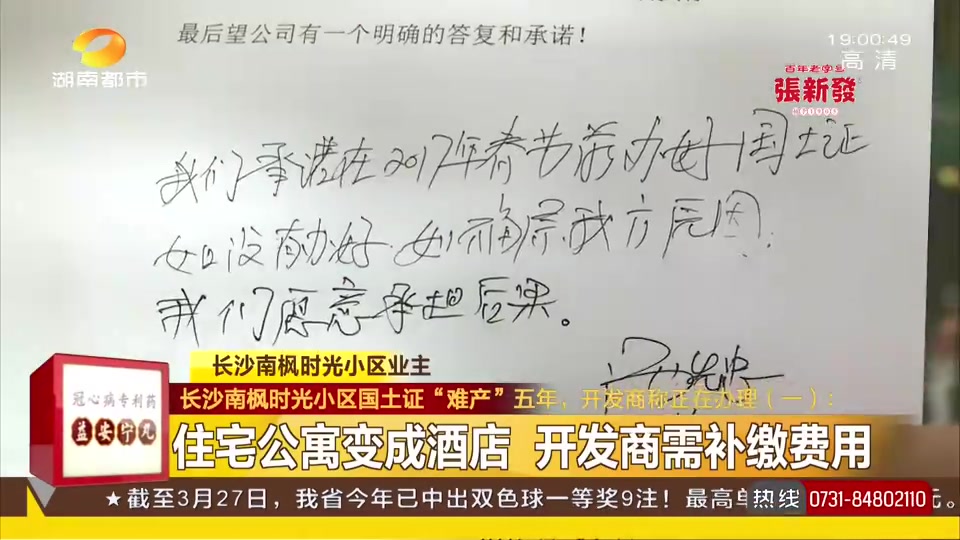 最后望公司有一个明确的答复和承诺！
湖南都市
19:00:49
高清
百年老字号
張新發
我们承诺在2017年春节前办好国土证
如没有办好.如确属我方原因,
我们愿意承担后果。
长沙南枫时光小区业主
长沙南枫时光小区国土证“难产”五年，开发商称正在办理（一）：
冠心病专利药
益安宁丸
住宅公寓变成酒店 开发商需补缴费用
★截至3月27日，我省今年已中出双色球一等奖9注！最高单
热线 0731-84802110
元。